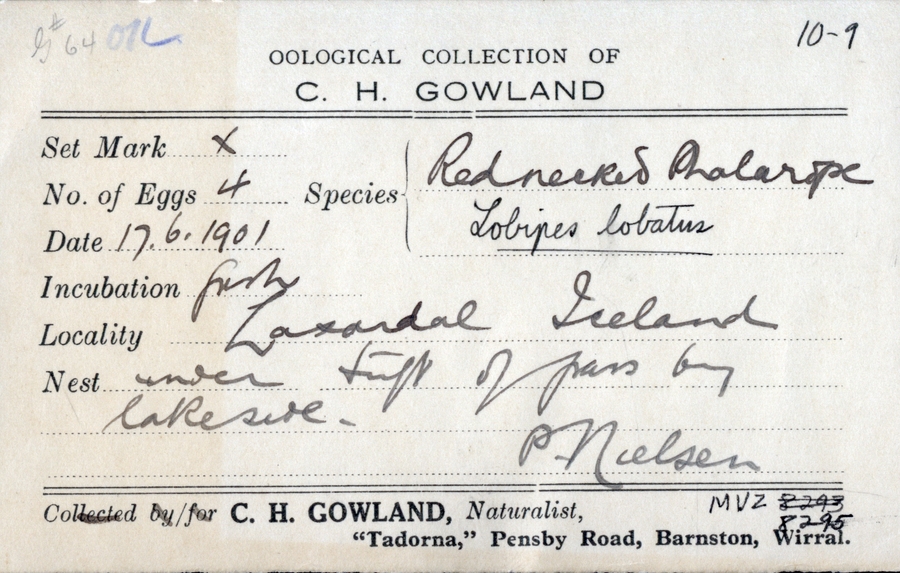 G# 64
10-9
OOLOGICAL COLLECTION OF
C. H. GOWLAND
Set Mark X
No. of Eggs 4 Species Red necked Phalarope
Date 17.6.1901 Lobipes lobatus
Incubation fresh
Locality Laxardal Iceland
Nest under tuft of grass by
lakeside.
P. Nielsen
Collected by/for C. H. GOWLAND, Naturalist, MVZ 8293
8295
"Tadorna," Pensby Road, Barnston, Wirral.